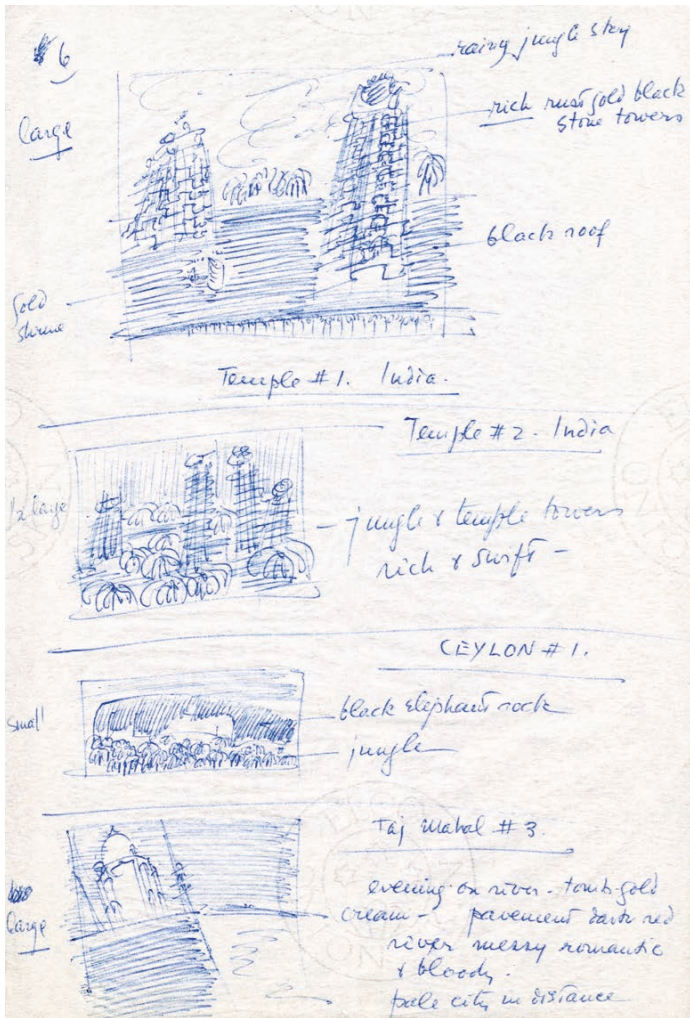 6
large
rainy jungle sky
rich rust gold black
stone towers
black roof
Gold
shrine
Temple # 1. India.
Temple # 2 - India
1/2 large
jungle & temple towers
rich & swift -
CEYLON # 1.
small
black elephant rock
jungle
Taj Mahal # 3.
large
evening on river - tomb gold
cream - pavement dark red
river messy romantic
& bloody.
pale city in distance